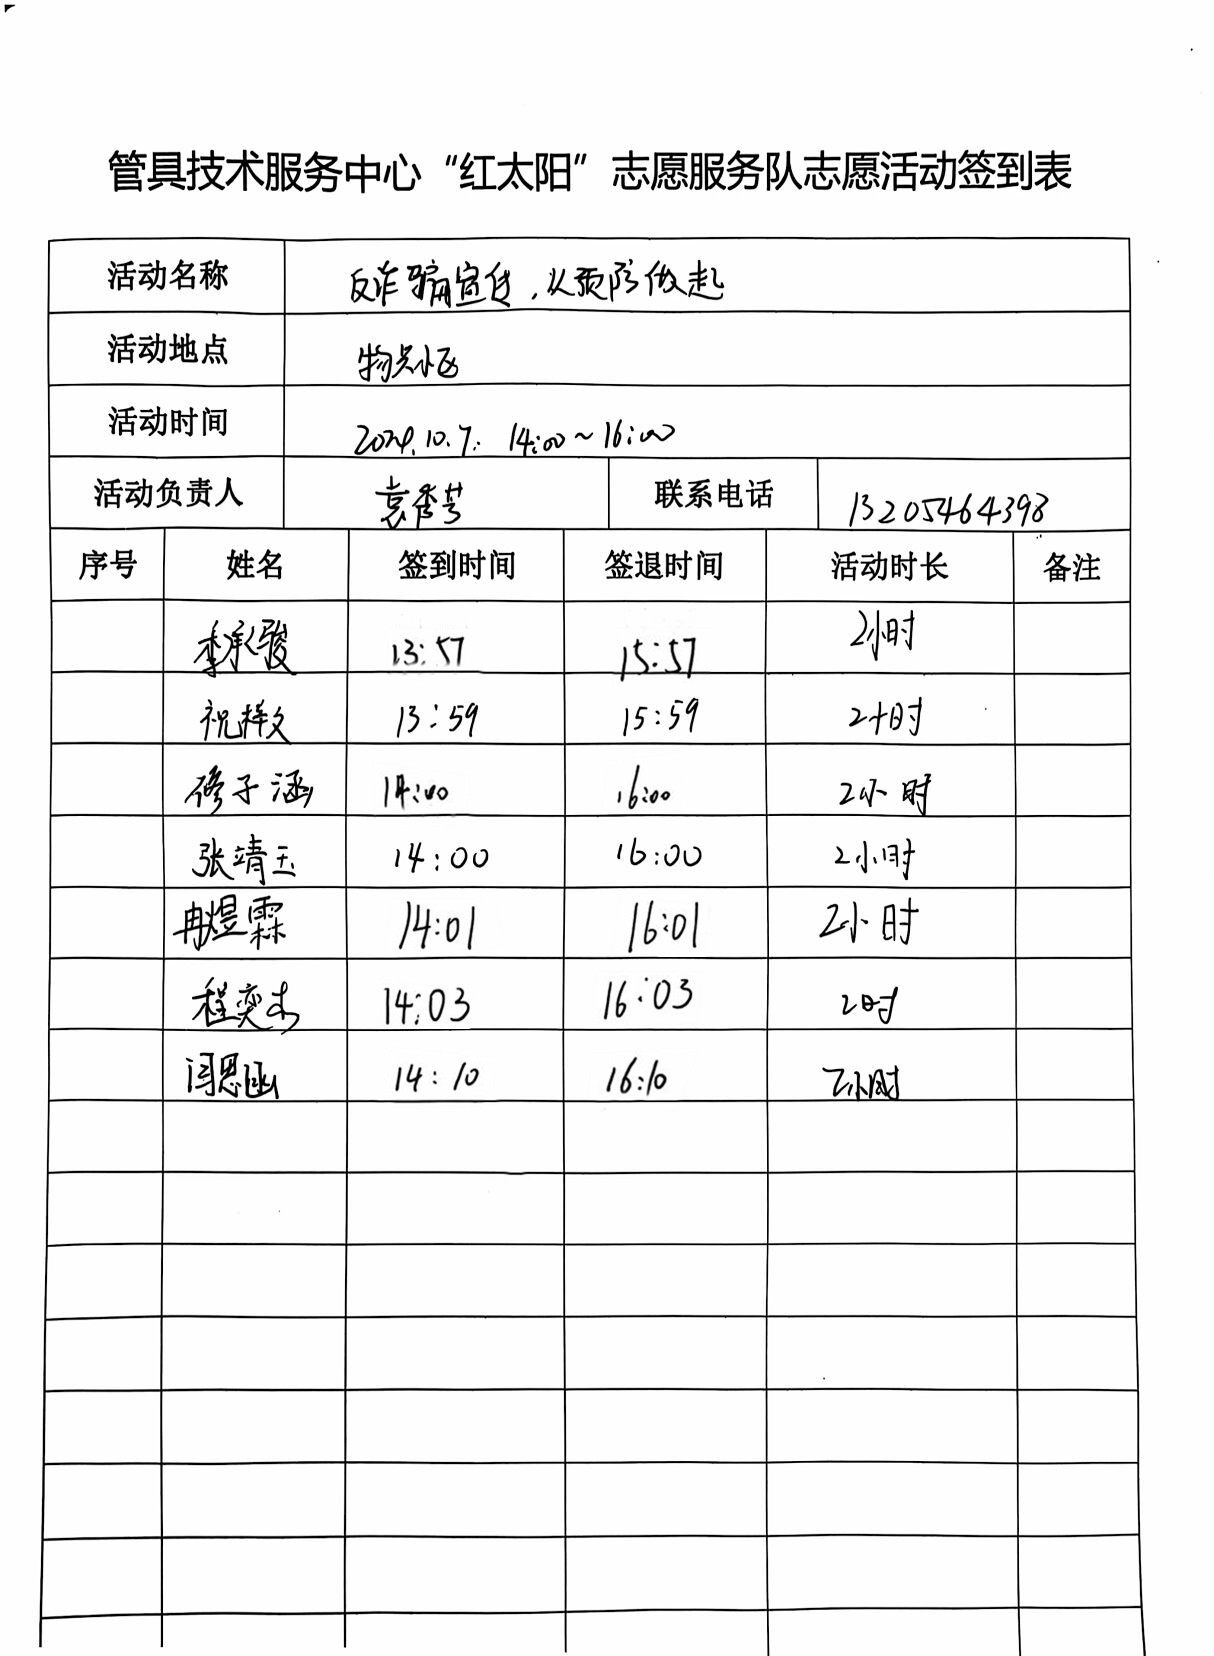 管具技术服务中心“红太阳”志愿服务队志愿活动签到表
活动名称 反诈骗宣传，从预防做起
活动地点 物兴小区
活动时间 2024.10.7. 14:00～16:00
活动负责人 袁秀芳 联系电话 13205464398
序号 姓名 签到时间 签退时间 活动时长 备注
李承骏 13:57 15:57 2小时
祝梓文 13:59 15:59 2小时
修子涵 14:00 16:00 2小时
张靖玉 14:00 16:00 2小时
冉煜霖 14:01 16:01 2小时
程奕杰 14:03 16:03 2时
闫恩函 14:10 16:10 2小时